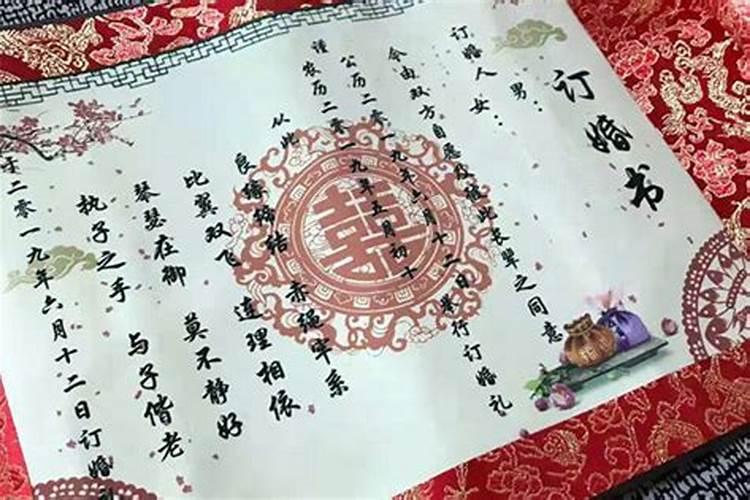 订婚书
男：
订婚人 女：
今由双方自愿及彼此长辈之同意
公历二零一九年六月十二日举行订婚礼
谨 农历二零一九年五月初十
从此 良缘缔结 赤绳牢系
比翼双飞 连理相依
琴瑟在御 莫不静好
执子之手 与子偕老
于二零一九年六月十二日 订婚